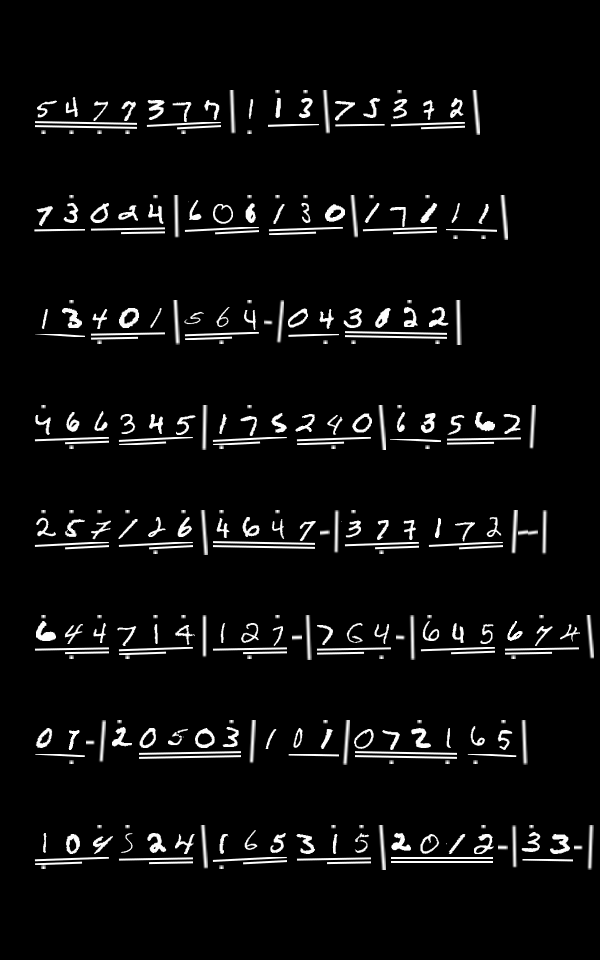 5 4 7 7 3 7 7 | 1 1 3 | 7 5 3 7 2 |
7 3 0 2 4 | 6 0 6 1 3 0 | 1 7 1 1 1 |
1 3 4 0 1 | 5 6 4 - | 0 4 3 0 2 2 |
4 6 6 3 4 5 | 1 7 5 2 9 0 | 6 3 5 6 2 |
2 5 7 1 2 6 | 4 6 4 7 - | 3 7 7 1 7 2 | - - |
6 4 4 7 1 4 | 1 2 7 - | 7 6 4 - | 6 4 5 6 7 4 |
0 7 - | 2 0 5 0 3 | 1 0 1 | 0 7 2 1 6 5 |
1 0 4 5 2 4 | 1 6 5 3 1 5 | 2 0 1 2 - | 3 3 - |